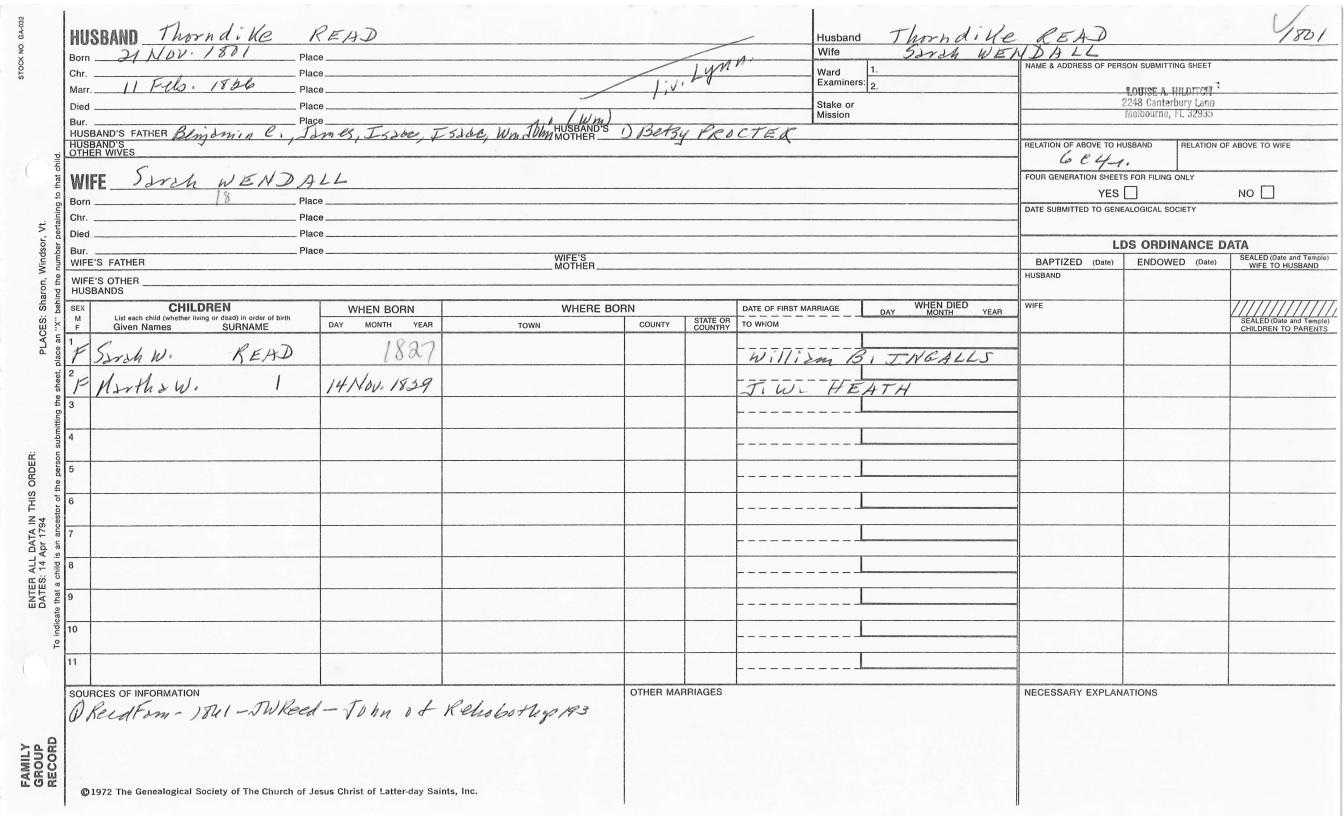 STOCK NO. GA-032
HUSBAND Thorndike READ
Born 21 Nov. 1801 Place
Chr. Place
Marr. 11 Feb. 1826 Place
Died Place
Bur. Place
liv. Lynn.
(Wm)
HUSBAND'S FATHER Benjamin C., James, Isaac, Isaac, Wm. John HUSBAND'S MOTHER 1) Betsy PROCTER
HUSBAND'S OTHER WIVES
WIFE Sarah WENDALL
Born 18 Place
Chr. Place
Died Place
Bur. Place
WIFE'S FATHER WIFE'S MOTHER
WIFE'S OTHER HUSBANDS
Husband Thorndike READ 1801
Wife Sarah WENDALL
Ward Examiners: 1.
2.
Stake or Mission
NAME & ADDRESS OF PERSON SUBMITTING SHEET
LOUISE A. HILDITCH
2248 Canterbury Lane
Melbourne, FL 32935
RELATION OF ABOVE TO HUSBAND RELATION OF ABOVE TO WIFE
FOUR GENERATION SHEETS FOR FILING ONLY
YES NO
DATE SUBMITTED TO GENEALOGICAL SOCIETY
LDS ORDINANCE DATA
BAPTIZED (Date) ENDOWED (Date) SEALED (Date and Temple) WIFE TO HUSBAND
HUSBAND
WIFE
SEALED (Date and Temple) CHILDREN TO PARENTS
SEX M F
CHILDREN
List each child (whether living or dead) in order of birth
Given Names SURNAME
WHEN BORN
DAY MONTH YEAR
WHERE BORN
TOWN COUNTY STATE OR COUNTRY
DATE OF FIRST MARRIAGE
TO WHOM
WHEN DIED
DAY MONTH YEAR
1 F Sarah W. READ 1827 William B. INGALLS
2 F Martha W. 14 Nov. 1829 J. W. HEATH
3
4
5
6
7
8
9
10
11
SOURCES OF INFORMATION
1 Reed Fam - 1861 - JW Reed - John of Rehoboth p 193
OTHER MARRIAGES
NECESSARY EXPLANATIONS
©1972 The Genealogical Society of The Church of Jesus Christ of Latter-day Saints, Inc.
PLACES: Sharon, Windsor, Vt.
ENTER ALL DATA IN THIS ORDER:
DATES: 14 Apr 1794
To indicate that a child is an ancestor of the person submitting the sheet, place an "X" behind the number pertaining to that child.
FAMILY GROUP RECORD